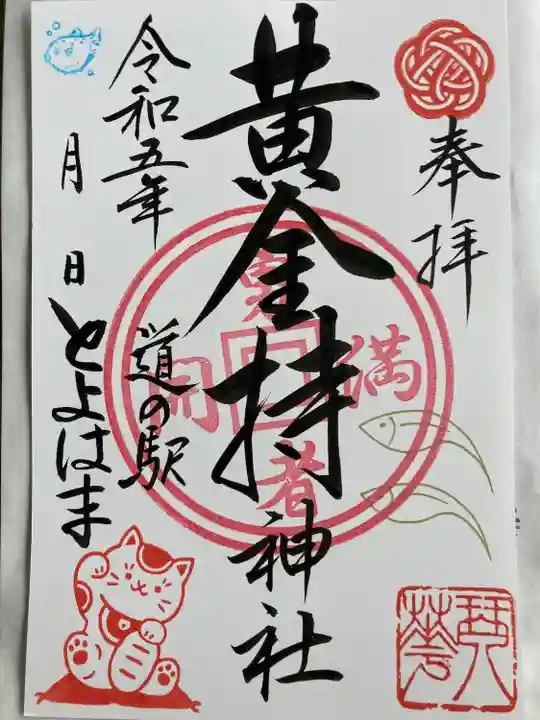 奉拝
黄金持神社
道の駅
とよはま
令和五年
月 日
満
開
者